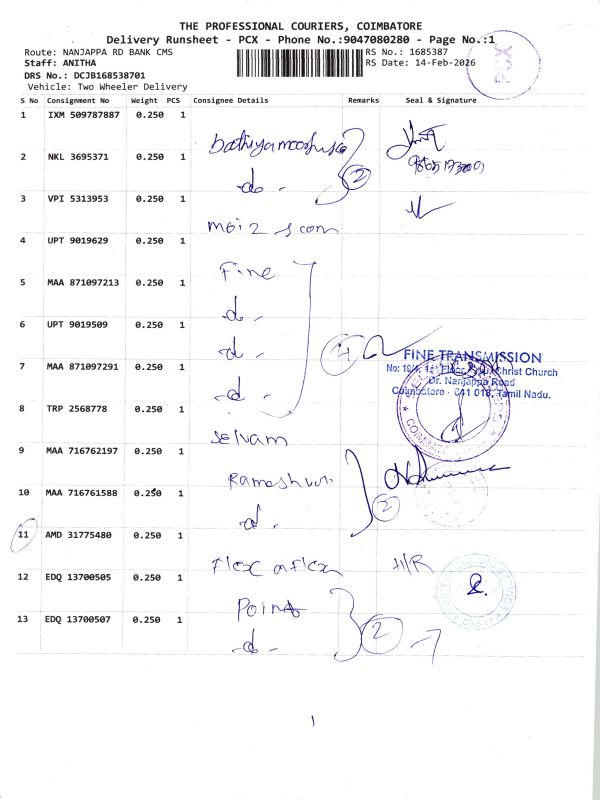 THE PROFESSIONAL COURIERS, COIMBATORE
Delivery Runsheet - PCX - Phone No.:9047080280 - Page No.:1
Route: NANJAPPA RD BANK CMS
RS No.: 1685387
Staff: ANITHA
RS Date: 14-Feb-2026
DRS No.: DCJB168538701
Vehicle: Two Wheeler Delivery
PCX
S No Consignment No Weight PCS Consignee Details Remarks Seal & Signature
1 IXM 509787887 0.250 1
2 NKL 3695371 0.250 1
do - 2
3 VPI 5313953 0.250 1
4 UPT 9019629 0.250 1
Fine
5 MAA 871097213 0.250 1
d. -
6 UPT 9019509 0.250 1
d. - 4
FINE TRANSMISSION
7 MAA 871097291 0.250 1
Christ Church
Dr. Nanjappa Road
d. -
Coimbatore - 641 018, Tamil Nadu.
8 TRP 2568778 0.250 1
Selvam
9 MAA 716762197 0.250 1
10 MAA 716761588 0.250 1
d. - 2
11 AMD 31775480 0.250 1
Flex aflex H/R
12 EDQ 13700505 0.250 1
Point
13 EDQ 13700507 0.250 1
d. - 2
1